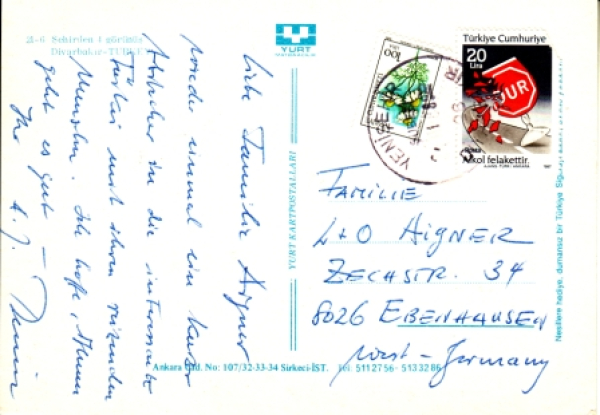 21-6 Şehirden 1 görünüş
Diyarbakır-TURKEY
YURT
Liebe Familie Aigner
wieder einmal ein kurzer
Abstecher in die interessante
Türkei mit ihren reizenden
Menschen. Ich hoffe, Ihnen
geht es gut –
Ihr
YURT KARTPOSTALLARI
Ankara Cad. No: 107/32-33-34 Sirkeci-İST. Tel: 511 27 56 - 513 32 86
100
Türkiye Cumhuriyeti
20
Lira
DUR
Alkol felakettir.
FAMILIE
L+O AIGNER
ZECHSTR. 34
8026 EBENHAUSEN
West-Germany
Nesillere hediye, dumansız bir Türkiye